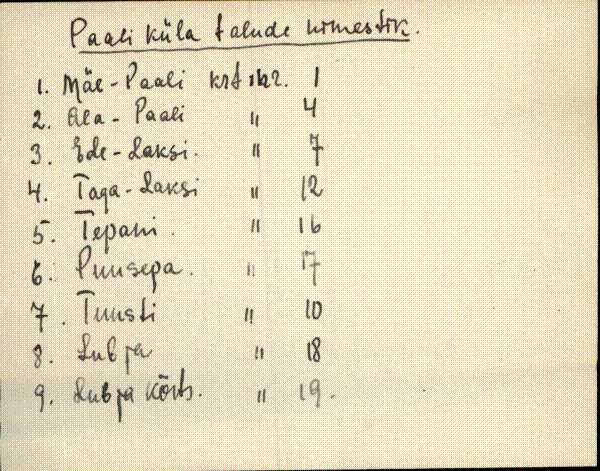 Paali küla talude nimestik.
1. Mäe-Paali krt. nr. 1
2. Ala-Paali " 4
3. Ede-Laksi. " 7
4. Taga-Laksi " 12
5. Tepani. " 16
6. Puusepa. " 17
7. Tuusti " 10
8. Lubja " 18
9. Lubja kõrts. " 19.